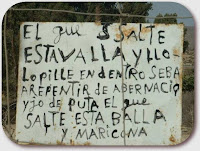 El que SALTE
ESTAVALLA y LLO
Lo pille EN dENtro SEbA
AREPENtir dE AbERNACIO
yjo dE putA El que
SALTE EStA bALLA
y MARICONA